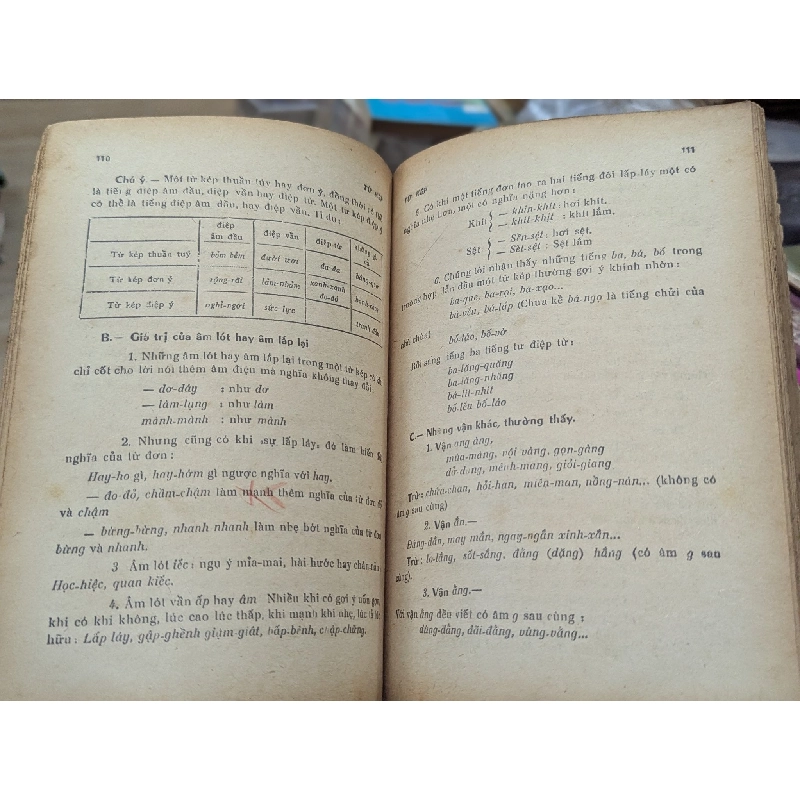 110
TỪ KÉP
Chú ý. — Một từ kép thuần túy hay đơn ý, đồng thời có thể
là tiếng điệp âm đầu, điệp vần hay điệp tự. Một từ kép điệp ý
có thể là tiếng điệp âm đầu, hay điệp vần. Tỉ dụ:
điệp âm đầu | điệp vần | điệp tự
Từ kép thuần tuý | bỏm bẻm | đười ươi | đa-đa
Từ kép đơn ý | rộng-rãi | lẩm-nhẩm | xanh-xanh đo-đỏ
Từ kép điệp ý | nghỉ-ngơi | sức lực
B.— Giá trị của âm lót hay âm lắp lại
1. Những âm lót hay âm lắp lại trong một từ kép có khi
chỉ cốt cho lời nói thêm âm điệu mà nghĩa không thay đổi
— dơ-dáy : như dơ
— làm-lụng : như làm
mành-mành : như mành
2. Nhưng cũng có khi sự lấp láy đó làm biến
nghĩa của từ đơn :
Hay-ho gì, hay-hớm gì ngược nghĩa với hay.
— đo-đỏ, chầm-chậm làm mạnh thêm nghĩa của từ đơn đỏ
và chậm
— bừng-bừng, nhanh nhanh làm nhẹ bớt nghĩa của từ đơn
bừng và nhanh.
3 Âm lót iếc: ngụ ý mỉa-mai, hài hước hay
Học-hiệc, quan kiếc.
4. Âm lót vần ấp hay âm Nhiều khi có gợi ý
khi có khi không, lúc cao lúc thấp, khi mạnh khi nhẹ, lúc
hữu : Lấp láy, gập-ghềnh giạm-giật, bấp-bênh, chập-chừng.
111
TỪ KÉP
5. Có khi một tiếng đơn tạo ra hai tiếng đôi lấp-láy một có
nghĩa nhẹ hơn, một có nghĩa nặng hơn :
Khít — khin-khít : hơi khít.
— khít-khịt : khít lắm.
Sệt — Sền-sệt : hơi sệt.
— Sệt-sệt : Sệt lắm
6. Chúng tôi nhận thấy những tiếng ba, bá, bố trong
trường hợp lần đầu một từ kép thường gợi ý khinh nhờn :
ba-que, ba-rọi, ba-xạo...
bá-vấu, bá-láp (Chưa kể bá-ngọ là tiếng chửi của
bố-láo, bố-vờ
Rồi sang tiếng ba tiếng tư điệp từ :
ba-lăng-quăng
ba-láng-nháng
bá-lít-nhít
bố-lếu bố-láo
C.— Những vận khác, thường thấy.
1. Vận ang áng,
mùa-màng, vội vàng, gọn-gàng
dở-dang, mênh-mang, giỏi-giang
Trừ: chứa-chan, hỏi-han, miên-man, nồng-nàn... (không có
âm g sau cùng)
2. Vận ắn.—
Đúng-đắn, may mắn, ngay-ngắn xinh-xắn...
Trừ : lo-lắng, sốt-sắng, đằng (đặng) hắng (có âm g sau
cùng).
3. Vận ằng.—
Với vận ằng đều viết có âm g sau cùng :
dùng-dằng, dãi-đằng, vùng-vằng...